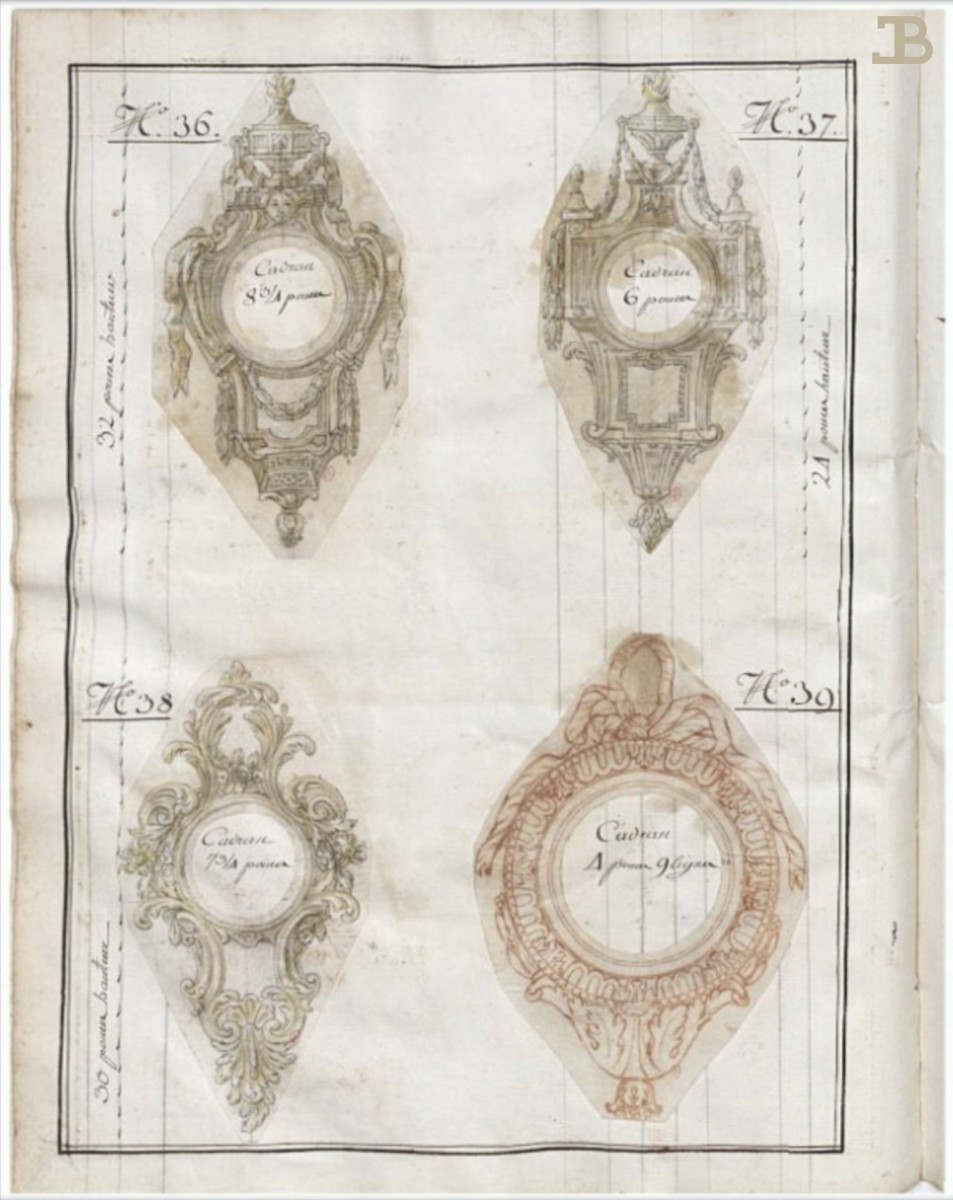 No. 36.
Cadran
8 3/4 pouces
32 pouces hauteur
No. 37.
Cadran
6 pouces
24 pouces hauteur
No 38
Cadran
7 3/4 pouces
30 pouces hauteur
No. 39
Cadran
4 pouces 9 lignes